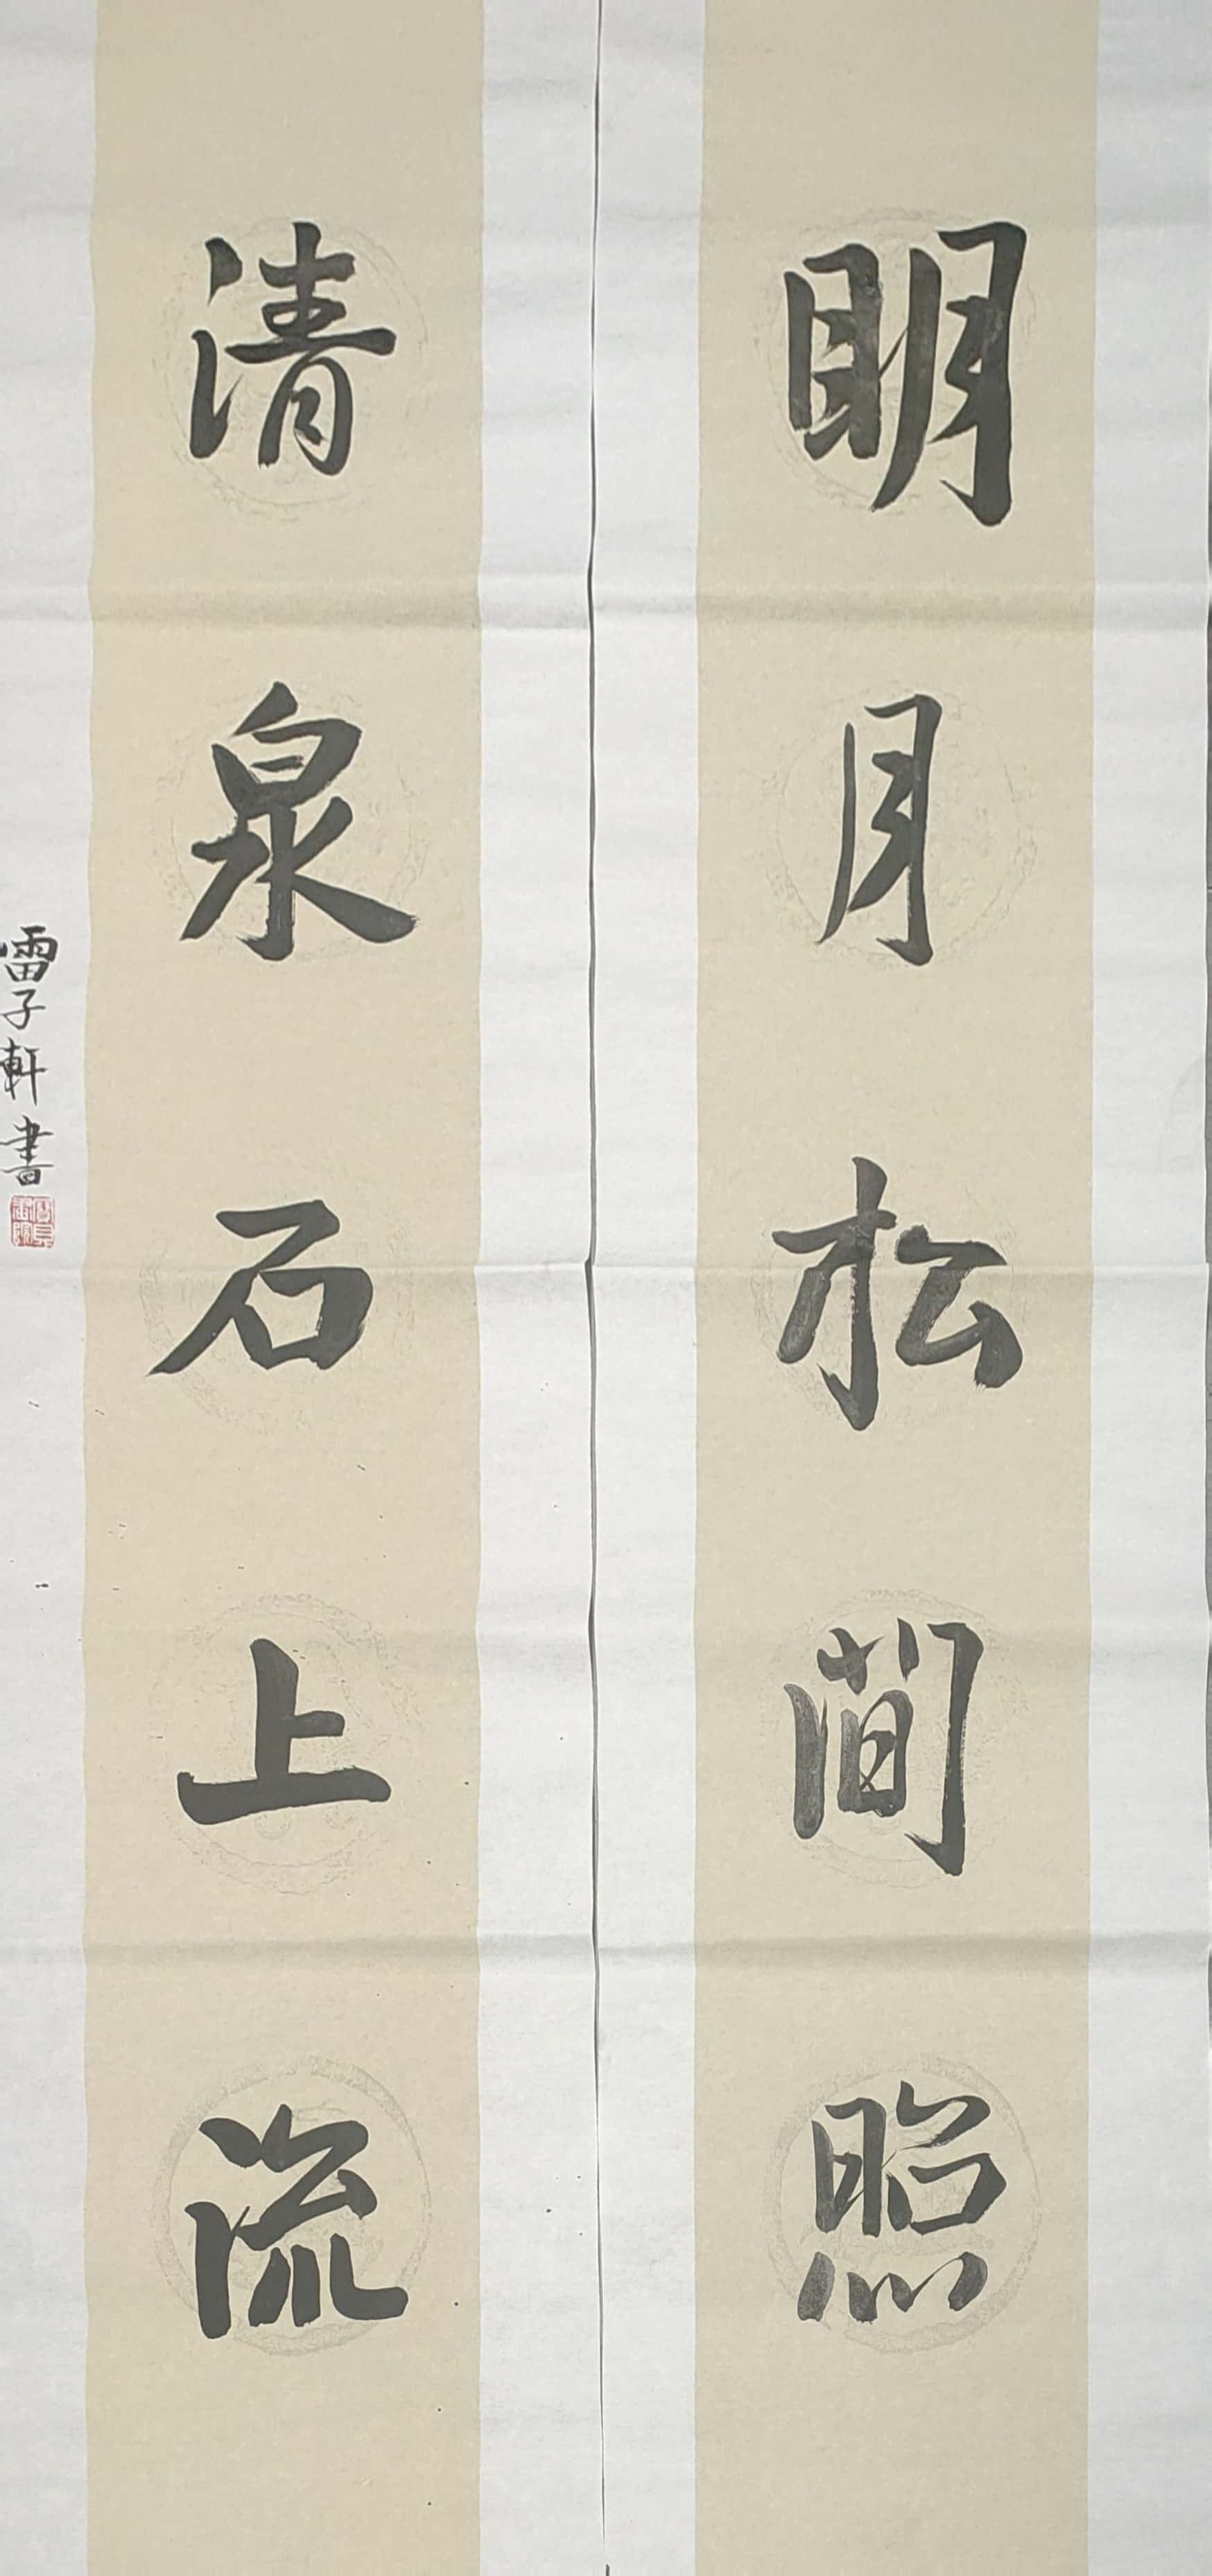 明月松間照
清泉石上流
雷子軒書